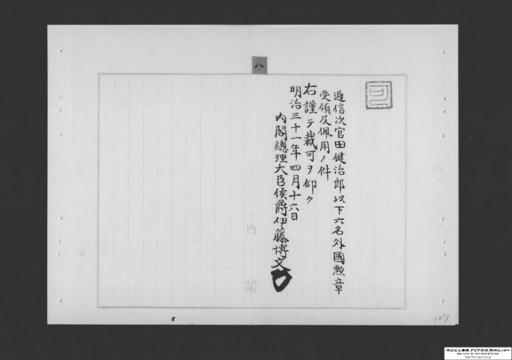 八
逓信次官田健治郎以下六名外國勲章
受領及佩用ノ件
右謹テ裁可ヲ仰ク
明治三十一年四月十六日
内閣總理大臣侯爵伊藤博文
内閣